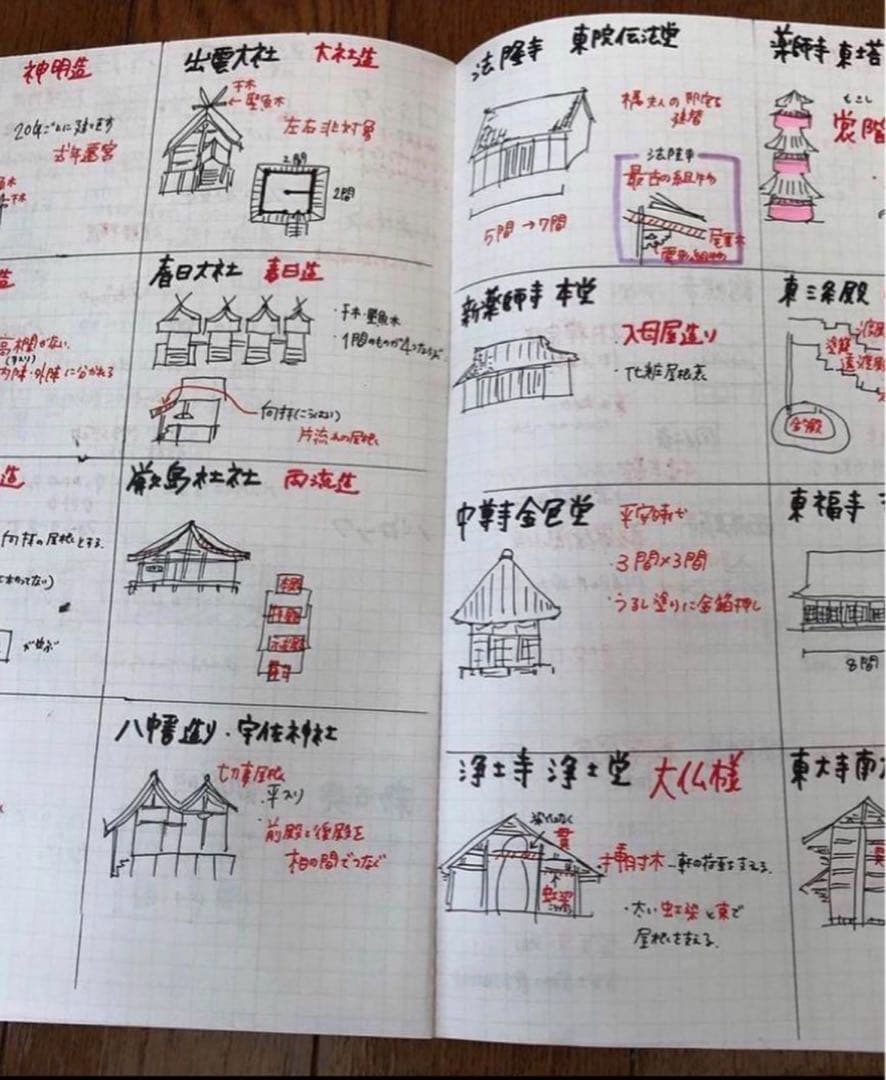 神明造
20年ごとに建て直す
式年遷宮
高欄がない
内陣・外陣に分かれる
向拝の屋根とする。
が並ぶ
出雲大社 大社造
千木
←堅魚木
左右非対象
2間
2間
春日大社 春日造
・千木・堅魚木
・1間のものが4つならぶ
向拝(こうはい)
片流れの屋根
厳島神社 両流造
本殿
拝殿
八幡造り・宇佐神社
切妻屋根
・平入り
・前殿と後殿を
相の間でつなぐ
法隆寺 東院伝法堂
橘夫人の邸宅を
5間→7間
法隆寺
最古の組物
尾垂木
雲形組物
新薬師寺 本堂
入母屋造り
・化粧屋根裏
中尊寺金色堂 平安時代
・3間×3間
・うるし塗りに金箔押し
浄土寺 浄土堂 大仏様
貫
虹梁
挿肘木
軒の荷重を支える。
・太い虹梁と束で
屋根を支える。
薬師寺 東塔
もこし
裳階
東三条殿
透渡殿
東福寺
8間
東大寺南
貫